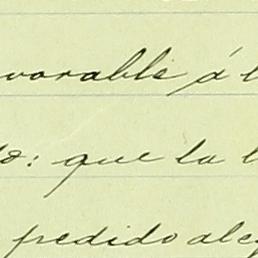 avorable á l
do: que la l
pedido aleg